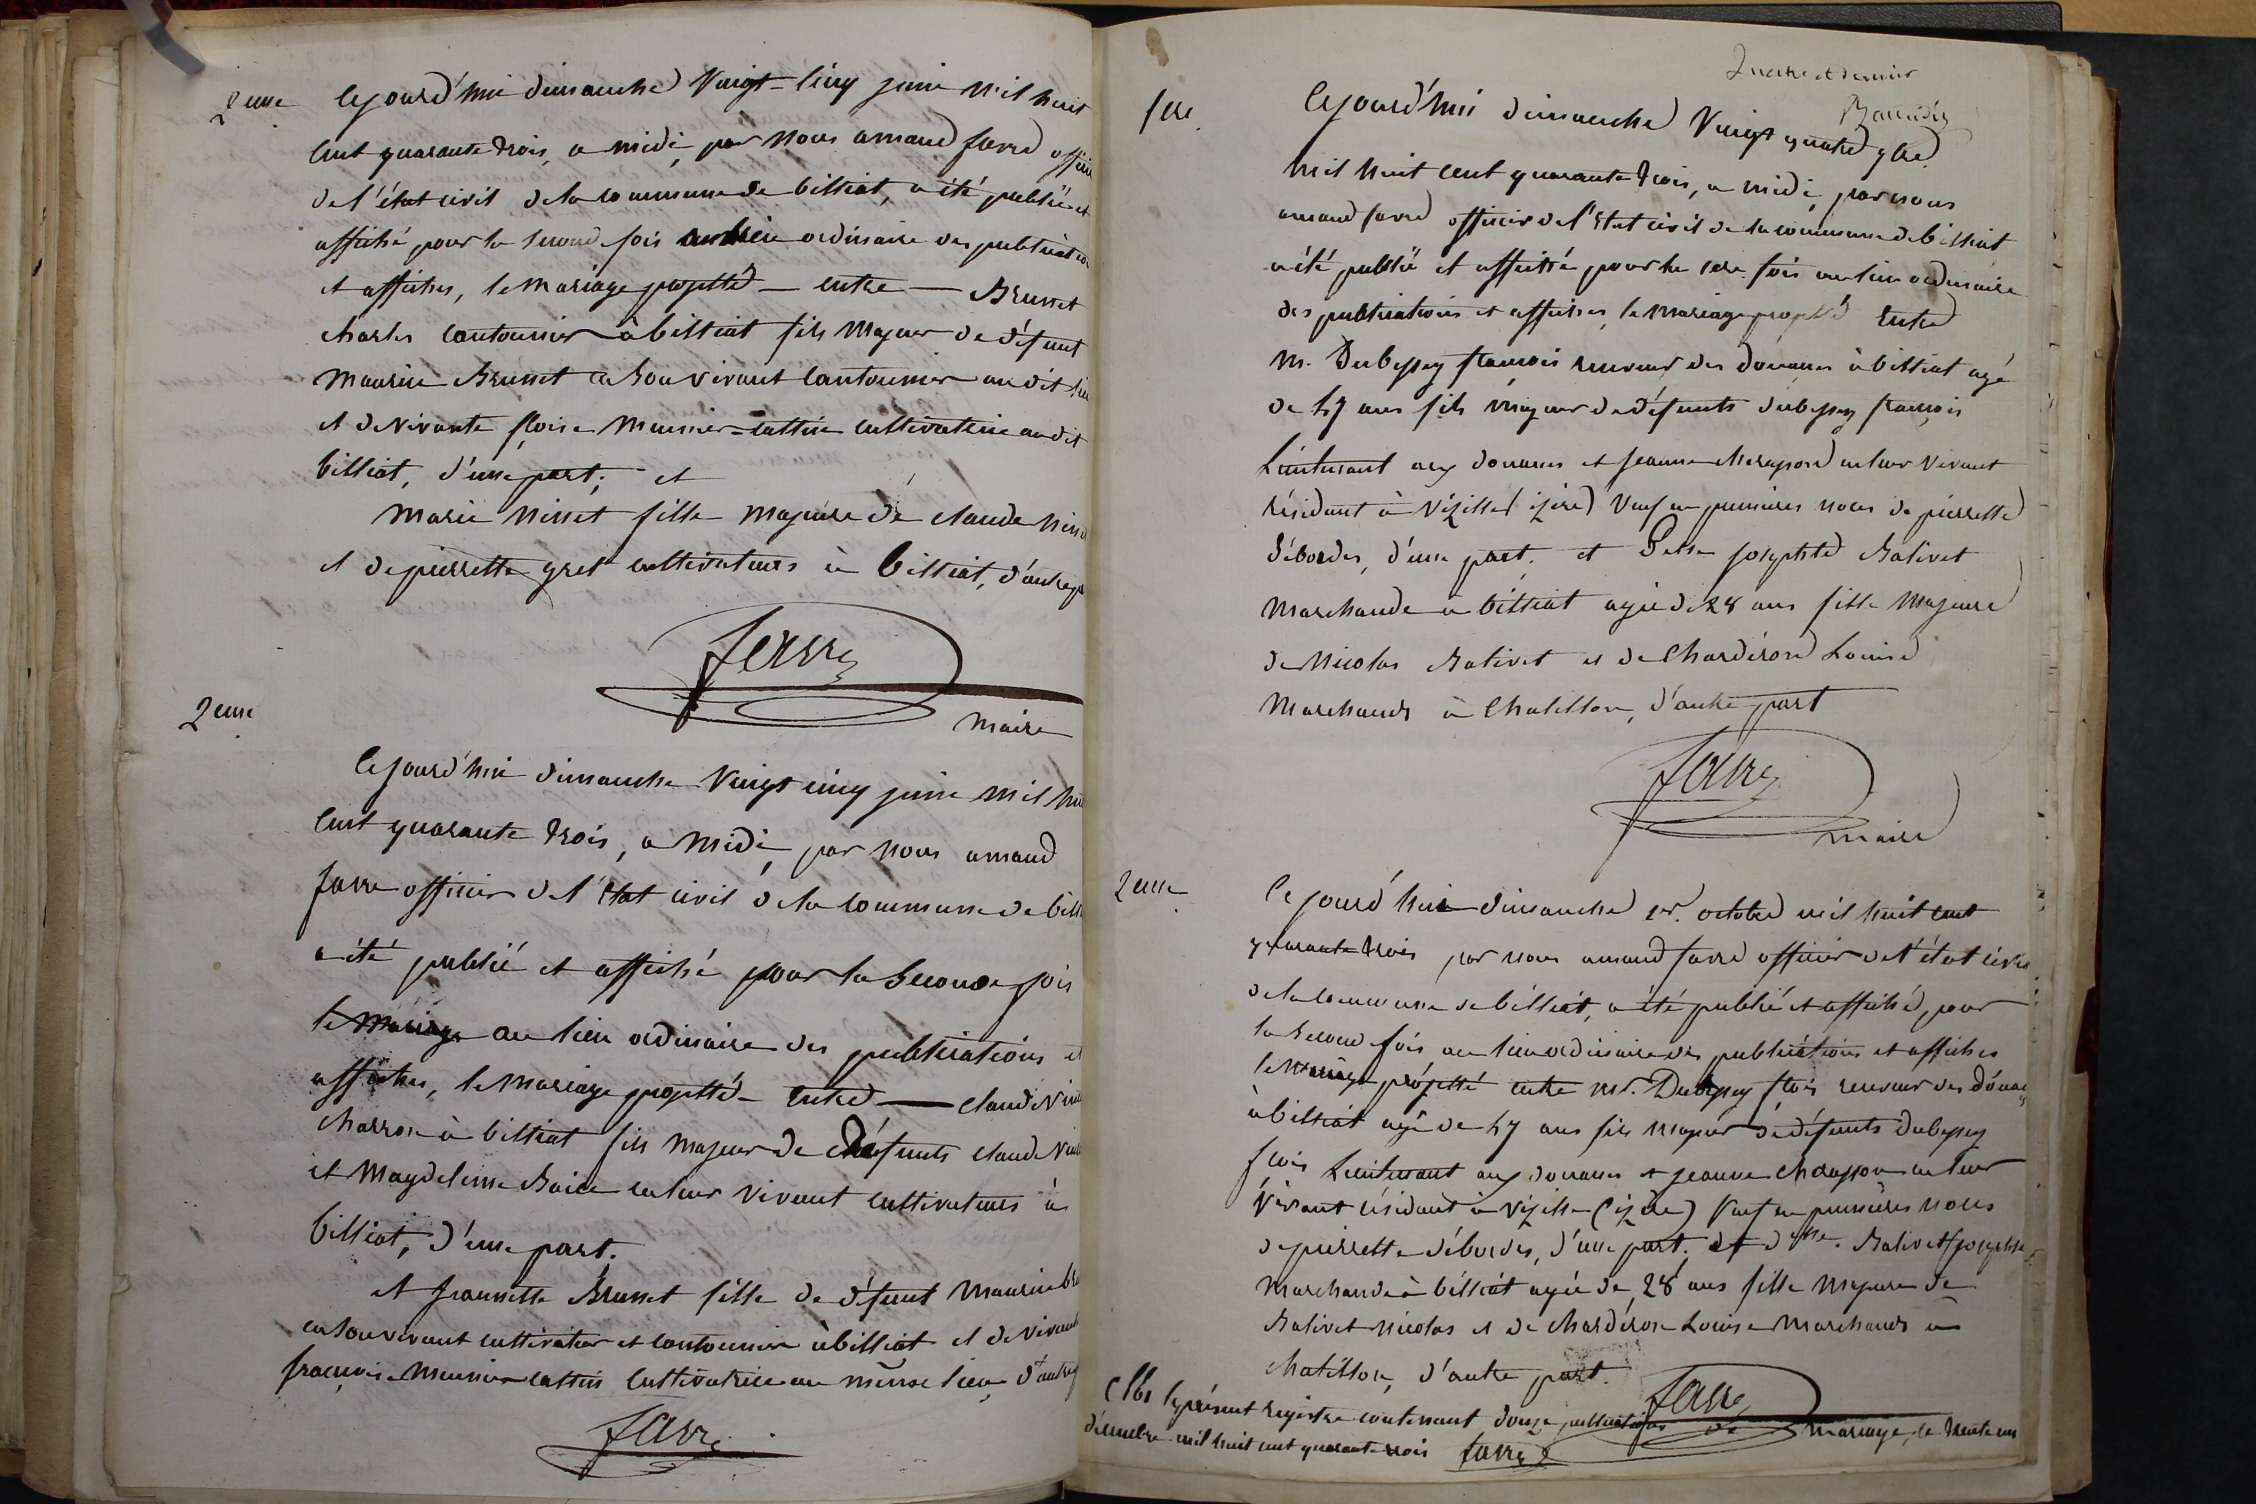 2eme Cejourd'hui dimanche Vingt-Cinq juin mil huit
Cent quarante trois, a midi, par nous amand favre officier
de l'état civil de la commune de billiat, a été publié et
affiché pour la second fois au lieu ordinaire des publications
et affiches, le mariage projetté — entre — Brunet
charles cantonnier à billiat fils majeur de défunt
maurice Brunet en son vivant Cantonnier au dit lieu
et de vivante floise Meunier-cattin cultivatrice au dit
billiat, d'une part; et
Marie Ninet fille majeure de claude Ninet
et de pierrette gret cultivateurs à billiat, d'autre part
favre
Maire
2eme
Cejourd'hui dimanche Vingt cinq juin mil huit
Cent quarante trois, a midi, par nous amand
favre officier de l'état civil de la commune de billiat
a été publié et affiché pour la seconde fois
le mariage au lieu ordinaire des publications et
affiches, le mariage projetté — entre — claude
charron à billiat fils majeur de défunts claude
et Magdeleine en leur vivant cultivateurs à
billiat, d'une part.
et jeannette Brunet fille de défunt Maurice
en son vivant cultivateur et cantonnier à billiat et de vivante
françoise Meunier cattin Cultivatrice au même lieu, d'autre
favre
quatre et dernier
1ere Cejourd'hui dimanche Vingt quatre 7bre
mil huit cent quarante trois, a midi, par nous
amand favre officier de l'état civil de la commune de billiat
a été publié et affiché pour la 1ere fois au lieu ordinaire
des publications et affiches, le mariage projetté entre
Mr. Dubessey françois receveur des douanes à billiat agé
de 47 ans fils majeur de défunts dubessey françois
Lieutenant aux douanes et jeanne en leur vivant
résidant à Vizille (izère) Veuf en premières noces de pierrette
débordes, d'une part. et Delle josephte Balivet
Marchande à billiat agée de 28 ans fille Majeure
de Nicolas Balivet et de Chardéron Louise
Marchands à Chatillon, d'autre part
favre
maire
2eme Cejourd'hui dimanche 1er. octobre mil huit cent
quarante trois par nous amand favre officier de l'état civil
de la commune de billiat, a été publié et affiché, pour
la second fois au lieu ordinaire des publications et affiches
le Mariage projetté entre mr. Dubessey flois receveur des douanes
à billiat agé de 47 ans fils majeur de défunts dubessey
flois Lieutenant aux douanes et jeanne en leur
vivant résidant à Vizille (izère) Veuf en premières noces
de pierrette débordes, d'une part. et delle. Balivet josephte
Marchande à billiat agée de 28 ans fille Majeure de
Balivet nicolas et de chardéron Louise Marchands à
chatillon, d'autre part.
favre
Clos le présent registre contenant douze publications de mariage, le trente un
décembre mil huit cent quarante trois favre